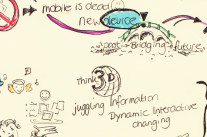 mobile is dead
new device
past Bridging future
Think 3D
juggling Information
Dynamic Interactive
changing